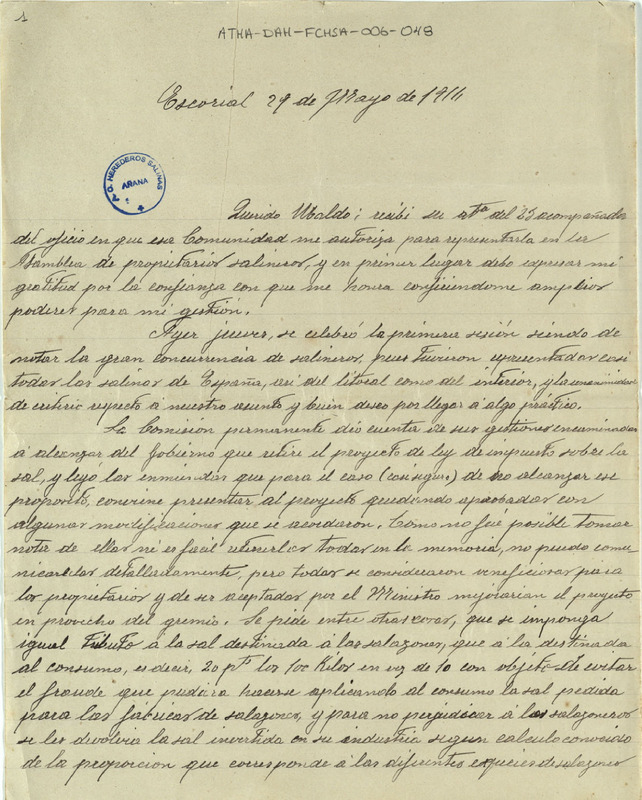 1
ATHA-DAH-FCHSA-006-048
Escorial 29 de Mayo de 1914
P. O. HEREDEROS SALINAS
ARANA
Querido Ubaldo: recibí su at.ª del 25 acompañada
del oficio en que esa Comunidad me autoriza para representarla en la
Asamblea de propietarios salineros, y en primer lugar debo expresar mi
gratitud por la confianza con que me honra confiriendome amplios
poderes para mi gestión.
Ayer jueves, se celebró la primera sesión siendo de
notar la gran concurrencia de salineros, pues tuvieron representadas casi
todas las salinas de España, asi del litoral como del interior, y la unanimidad
de criterio respecto á nuestro asunto y buen deseo por llegar á algo práctico.
La Comision permanente dió cuenta de sus gestiones encaminadas
á alcanzar del Gobierno que retire el proyecto de ley de impuesto sobre la
sal, y leyó las enmiendas que para el caso (casi seguro) de no alcanzar ese
proposito, conviene presentar al proyecto quedando aprobadas con
algunas modificaciones que se acordaron. Como no fué posible tomar
nota de ellas ni es facil retenerlas todas en la memoria, no puedo comu
nicarselas detalladamente, pero todas se consideraron veneficiosas para
los propietarios y de ser aceptadas por el Ministro mejorarian el proyecto
en provecho del gremio. Se pide entre otras cosas, que se imponga
igual tributo á la sal destinada á las salazones, que á la destinada
al consumo, es decir, 20 pts los 100 Kilos en vez de 10 con objeto de evitar
el fraude que pudiera hacerse aplicando al consumo la sal pedida
para las fábricas de salazones, y para no perjudicar á los salazoneros
se les devolveria la sal invertida en su industria segun calculo conocido
de la proporcion que corresponde á las diferentes especies de salazones